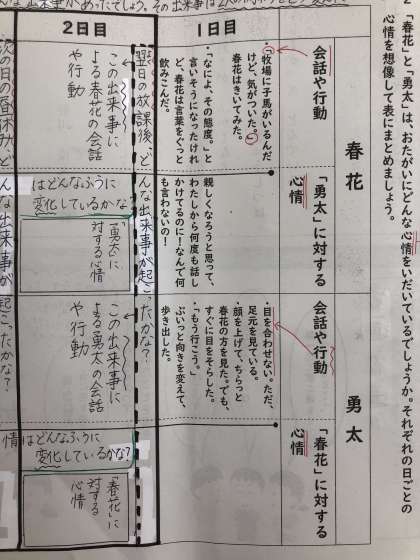 2 「春花」と「勇太」は、おたがいにどんな心情をいだいているでしょうか。それぞれの日ごとの
心情を想像して表にまとめましょう。
春花
勇太
会話や行動
「勇太」に対する
心情
会話や行動
「春花」に対する
心情
1日目
・「牧場に子馬がいるんだ
けど、気がついた。」と
春花はきいてみた。
・「なによ、その態度。」と
言いそうになったけれ
ど、春花は言葉をぐっと
飲みこんだ。
親しくなろうと思って、
わたしから何度も話し
かけてるのに!なんで何
も言わないの!
・目を合わせない。ただ、
足元を見ている。
・顔を上げて、ちらっと
春花の方を見た。でも、
すぐに目をそらした。
・「もう行こう。」
ぷいっと向きを変えて、
歩き出した。
2日目
曜日の放課後、どんな出来事が起こったかな?
この出来事に
よる春花の会話
や行動
はどんなふうに
変化しているかな
「勇太」に
対する心情
この出来事に
よる勇太の会話
や行動
情はどんなふうに
変化しているかな?
「春花」に
対する
心情
次の日の昼休み、どんな出来事が起こったかな?